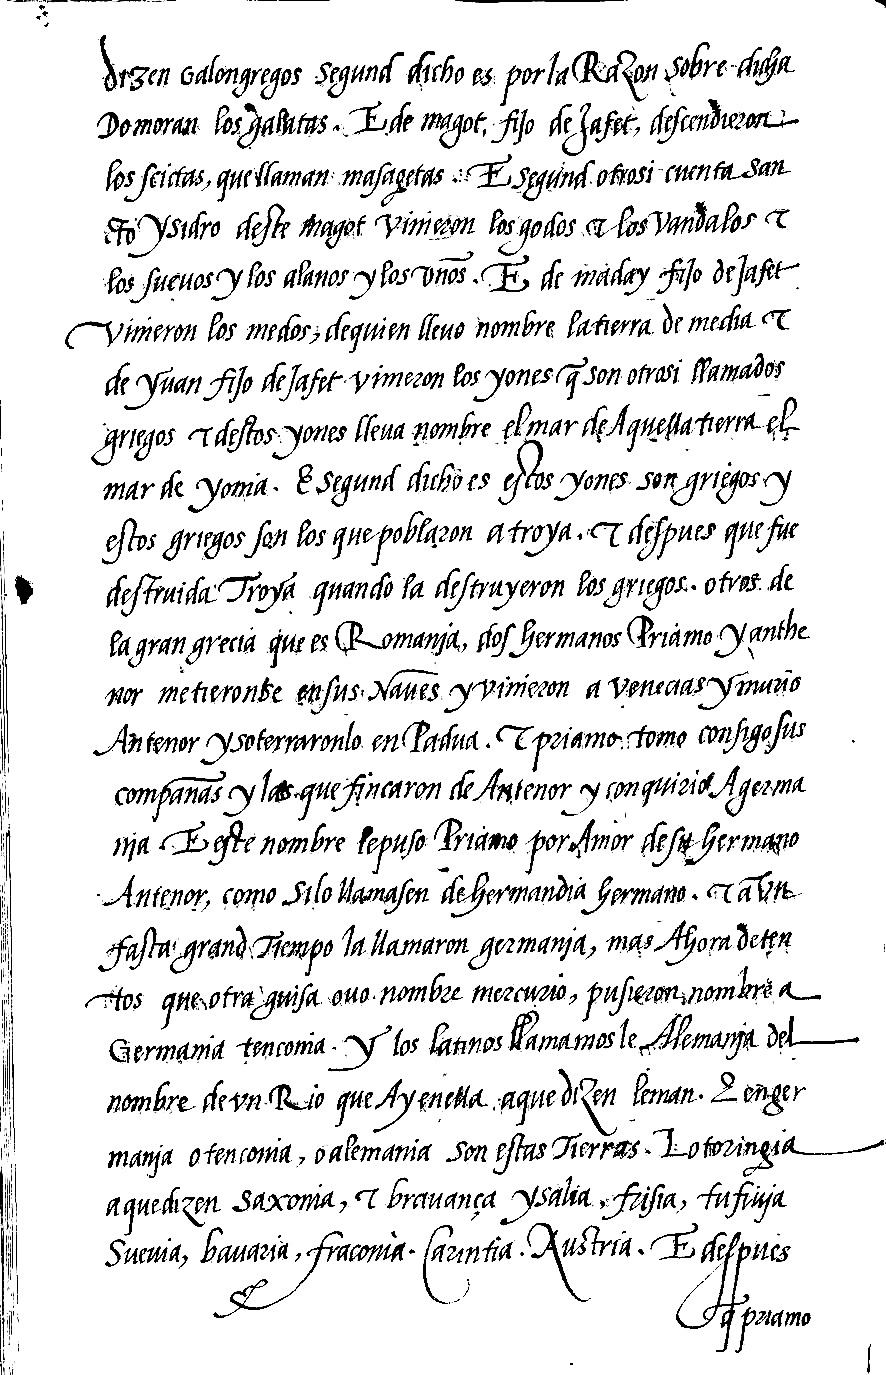 dizen Galongregos Segund dicho es por la Razon sobre dicha
Do moran los galatas. E de magot, fijo de Jafet, descendieron
los scictas, que llaman masagetas. E Segund otrosi cuenta San
cto Ysidro deste magot vinieron los godos τ los Vandalos τ
los suevos y los alanos y los vnos. E de maday fijo de Jafet
vinieron los medos, de quien llevo nombre la tierra de media τ
de Yuan fijo de Jafet vinieron los yones q̃ son otrosi llamados
griegos τ destos yones lleva nombre el mar de Aquella tierra el
mar de yonia. E Segund dicho es estos yones son griegos y
estos griegos son los que poblaron a troya. τ despues que fue
destruida Troya quando la destruyeron los griegos. otros de
la gran grecia que es Romanja, dos hermanos Priamo y anthe
nor metieronse en sus Naves y vinieron a Venecias y murio
Antenor y soterraronlo en Padua. τ priamo tomo consigo sus
compañas y las que fincaron de Antenor y conquirio A germa
nja E este nombre le puso Priamo por Amor de su hermano
Antenor, como Si lo llamasen de hermandia hermano. τ aun
fasta grand Tiempo la llamaron germanja, mas Ahora de ten
tos que otra guisa ovo nombre mercurio, pusieron nombre a
Germania tenconia. Y los latinos llamamosle Alemanja del
nombre de vn Rio que Ay en ella a que dizen leman. E en ger
manja o tenconia, o alemania son estas Tierras. Lotoringia
a que dizen Saxonia, τ bravança ysalia, frisia, tufiuja
Suevia, bavaria, fraconia. Carintia. Austria. E despues
q̃ priamo